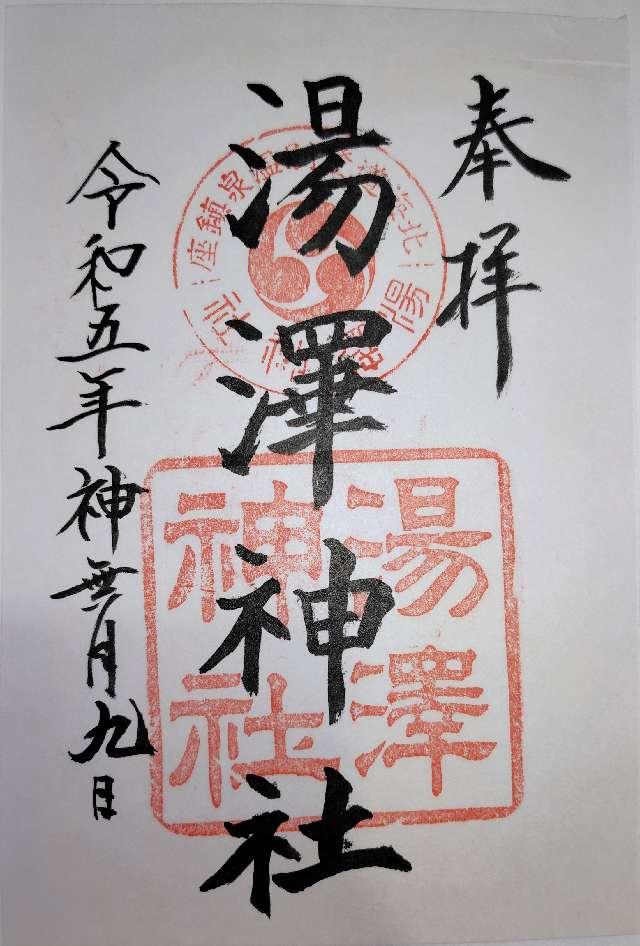 奉拝
湯澤神社
令和五年神無月九日
湯澤
神社